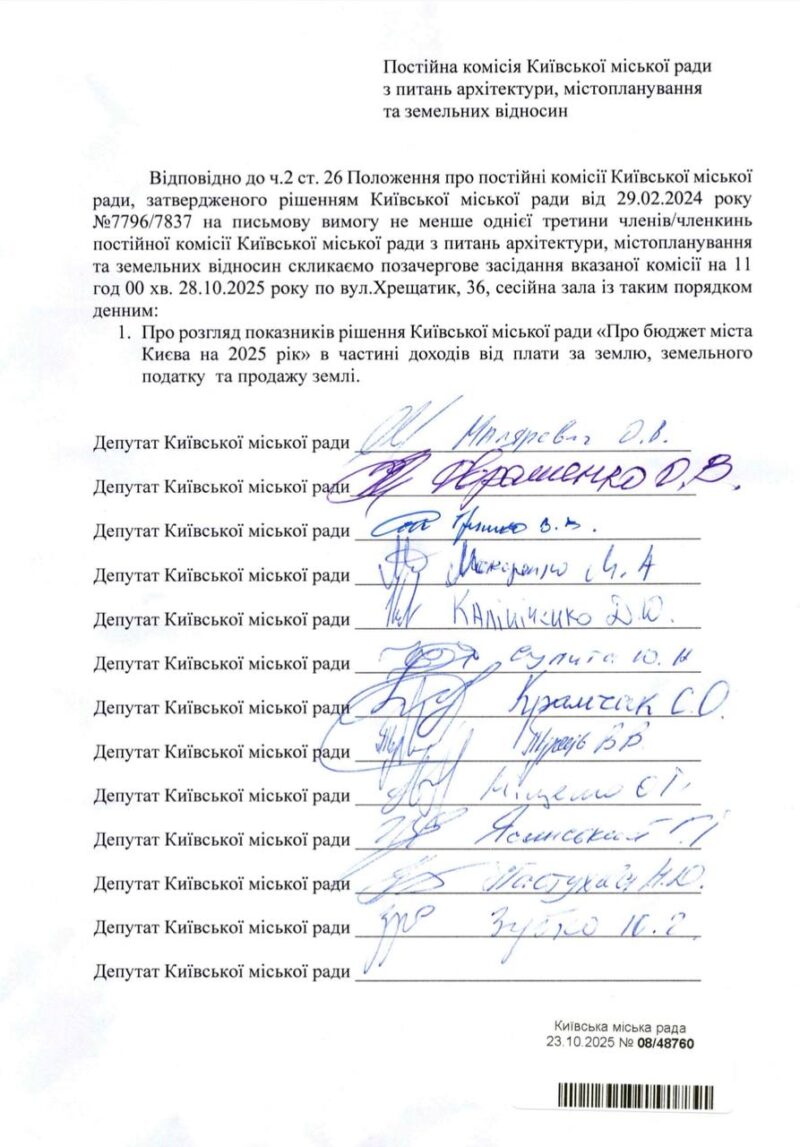 Постійна комісія Київської міської ради
з питань архітектури, містопланування
та земельних відносин
Відповідно до ч.2 ст. 26 Положення про постійні комісії Київської міської
ради, затвердженого рішенням Київської міської ради від 29.02.2024 року
№7796/7837 на письмову вимогу не менше однієї третини членів/членкинь
постійної комісії Київської міської ради з питань архітектури, містопланування
та земельних відносин скликаємо позачергове засідання вказаної комісії на 11
год 00 хв. 28.10.2025 року по вул.Хрещатик, 36, сесійна зала із таким порядком
денним:
1. Про розгляд показників рішення Київської міської ради «Про бюджет міста
Києва на 2025 рік» в частині доходів від плати за землю, земельного
податку та продажу землі.
Депутат Київської міської ради Маляревич О.В.
Депутат Київської міської ради О.В.
Депутат Київської міської ради В.В.
Депутат Київської міської ради Макаренко М.А
Депутат Київської міської ради Калініченко Д.Ю.
Депутат Київської міської ради Сулига Ю.
Депутат Київської міської ради Крамчак С.О.
Депутат Київської міської ради В В
Депутат Київської міської ради
Депутат Київської міської ради Ясинський Г.І
Депутат Київської міської ради Н.Ю.
Депутат Київської міської ради Зубко Ю.Г.
Депутат Київської міської ради
Київська міська рада
23.10.2025 № 08/48760